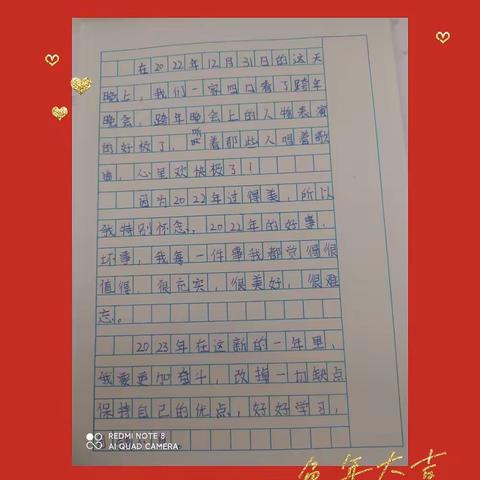 在2022年12月31日的这天
晚上，我们一家四口看了跨年
晚会，跨年晚会上的人物表演
的好极了，听着那些人唱着歌
曲，心里欢快极了！
因为2022年过得美，所以
我特别怀念，2022年的好事，
坏事，我每一件事我都觉得很
值得，很充实，很美好，很难
忘。
2023年在这新的一年里，
我要更加奋斗，改掉一切缺点
保持自己的优点，好好学习，
REDMI NOTE 8
AI QUAD CAMERA
兔年大吉